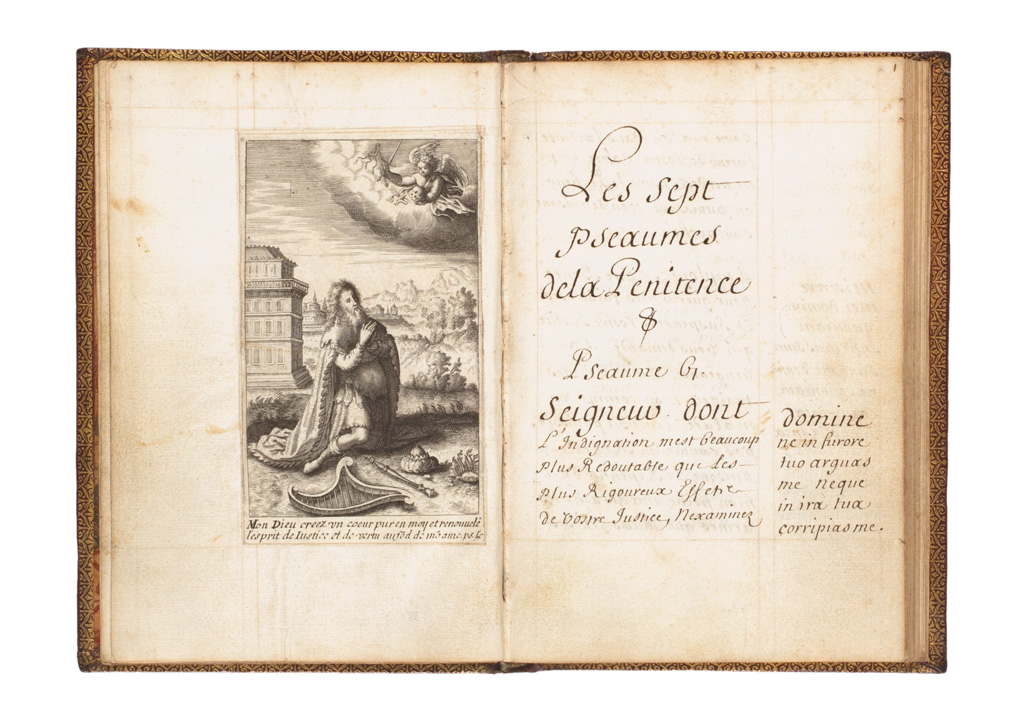 Mon Dieu creez vn coeur pur en moy et renouuelé
l'esprit de Iustice et de vertu au fōd de mō ame. ps. 50
1
Les sept
pseaumes
dela Penitence
Pseaume 6.
Seigneur dont
L'Indignation mest beaucoup
Plus Redoutable que les
Plus Rigoureux Effets
de vostre Justice, Nexaminez
domine
ne in furore
tuo arguas
me neque
in ira tua
corripias me.